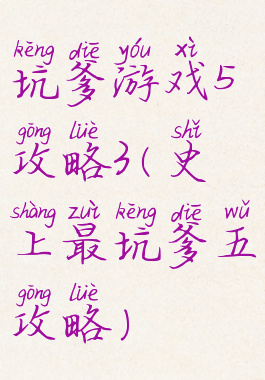 kēng diē yóu xì
坑爹游戏5
gōng lüè shǐ
攻略3(史
shàng zuì kēng diē wǔ
上最坑爹五
gōng lüè
攻略)